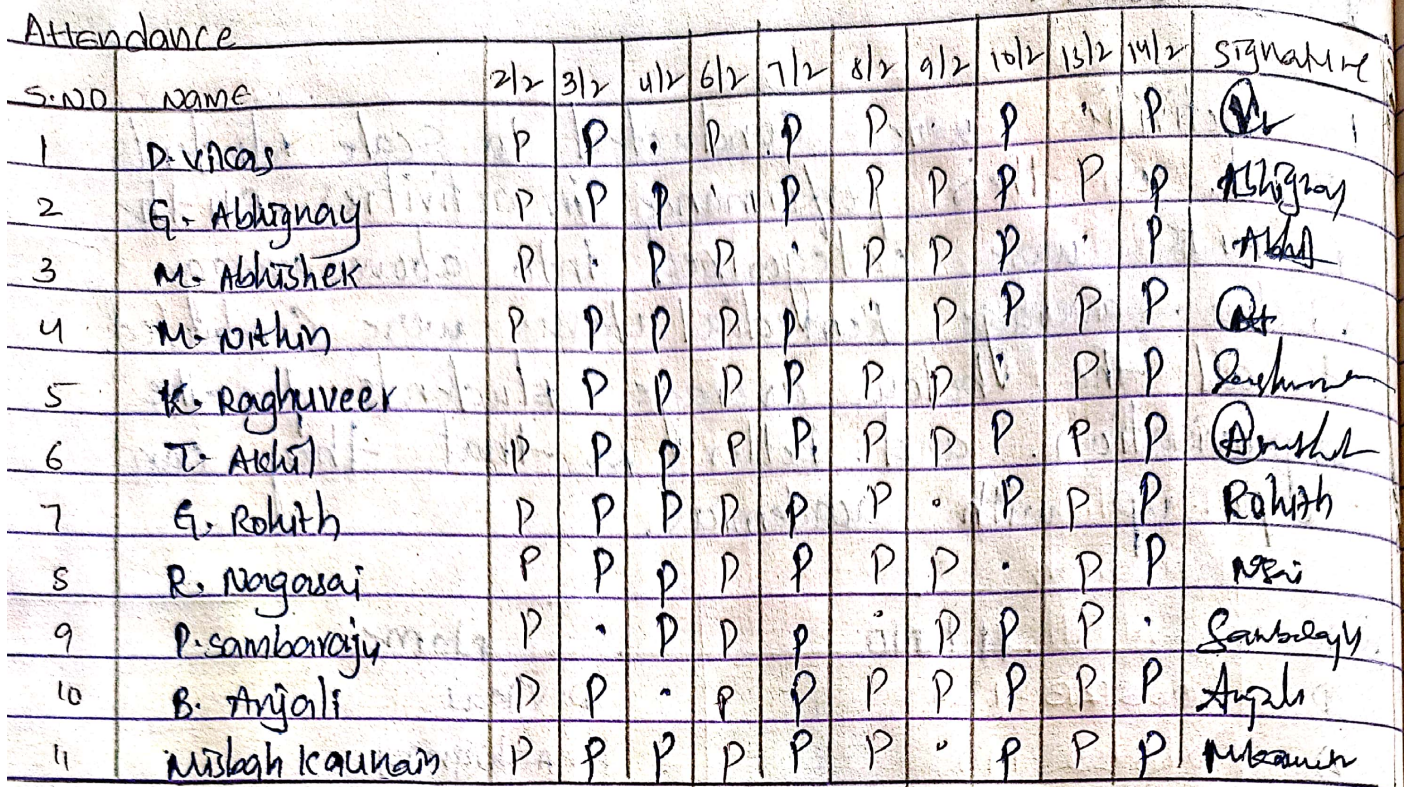 Attendance
S.NO Name 2/2 3/2 4/2 6/2 7/2 8/2 9/2 10/2 13/2 14/2 signature
1 D. Vikas P P . P P P . P . P
2 G. Abhignay P P P . P P P P P P Abhignay
3 M. Abhishek P . P P . P P P . P
4 M. Nithin P P P P P . P P P P
5 K. Raghuveer . P P P P P P . P P
6 T. Akhil P P P P P. P P P P P
7 G. Rohith P P P P P P . P P P Rohith
8 R. Nagasai P P P P P P P . P P NSai
9 P. sambaraju P . P P P . P P P .
10 B. Anjali P P . P P P P P P P Anjali
11 Misbah Kaunain P P P P P P . P P P